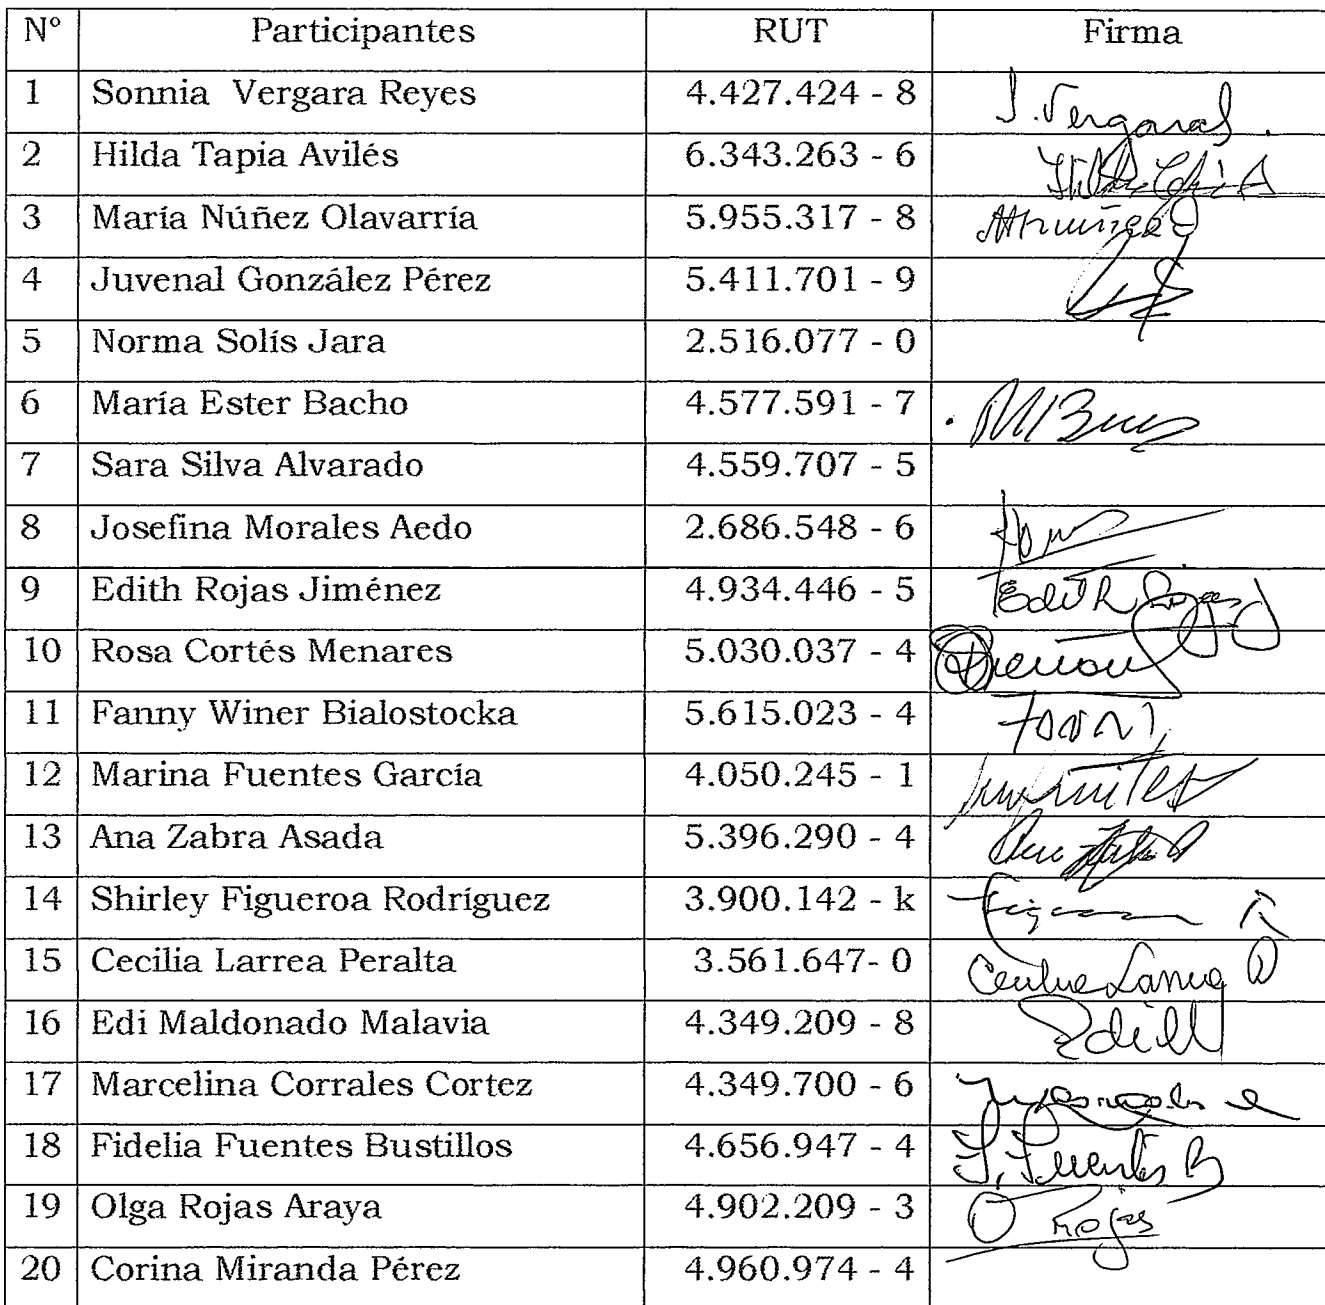 N° Participantes RUT Firma
1 Sonnia Vergara Reyes 4.427.424 - 8 S. Vergara
2 Hilda Tapia Avilés 6.343.263 - 6
3 María Núñez Olavarría 5.955.317 - 8
4 Juvenal González Pérez 5.411.701 - 9
5 Norma Solís Jara 2.516.077 - 0
6 María Ester Bacho 4.577.591 - 7
7 Sara Silva Alvarado 4.559.707 - 5
8 Josefina Morales Aedo 2.686.548 - 6
9 Edith Rojas Jiménez 4.934.446 - 5 Edith Rojas J
10 Rosa Cortés Menares 5.030.037 - 4
11 Fanny Winer Bialostocka 5.615.023 - 4
12 Marina Fuentes García 4.050.245 - 1
13 Ana Zabra Asada 5.396.290 - 4
14 Shirley Figueroa Rodríguez 3.900.142 - k
15 Cecilia Larrea Peralta 3.561.647- 0
16 Edi Maldonado Malavia 4.349.209 - 8
17 Marcelina Corrales Cortez 4.349.700 - 6
18 Fidelia Fuentes Bustillos 4.656.947 - 4 F. Fuentes B
19 Olga Rojas Araya 4.902.209 - 3 O Rojas
20 Corina Miranda Pérez 4.960.974 - 4